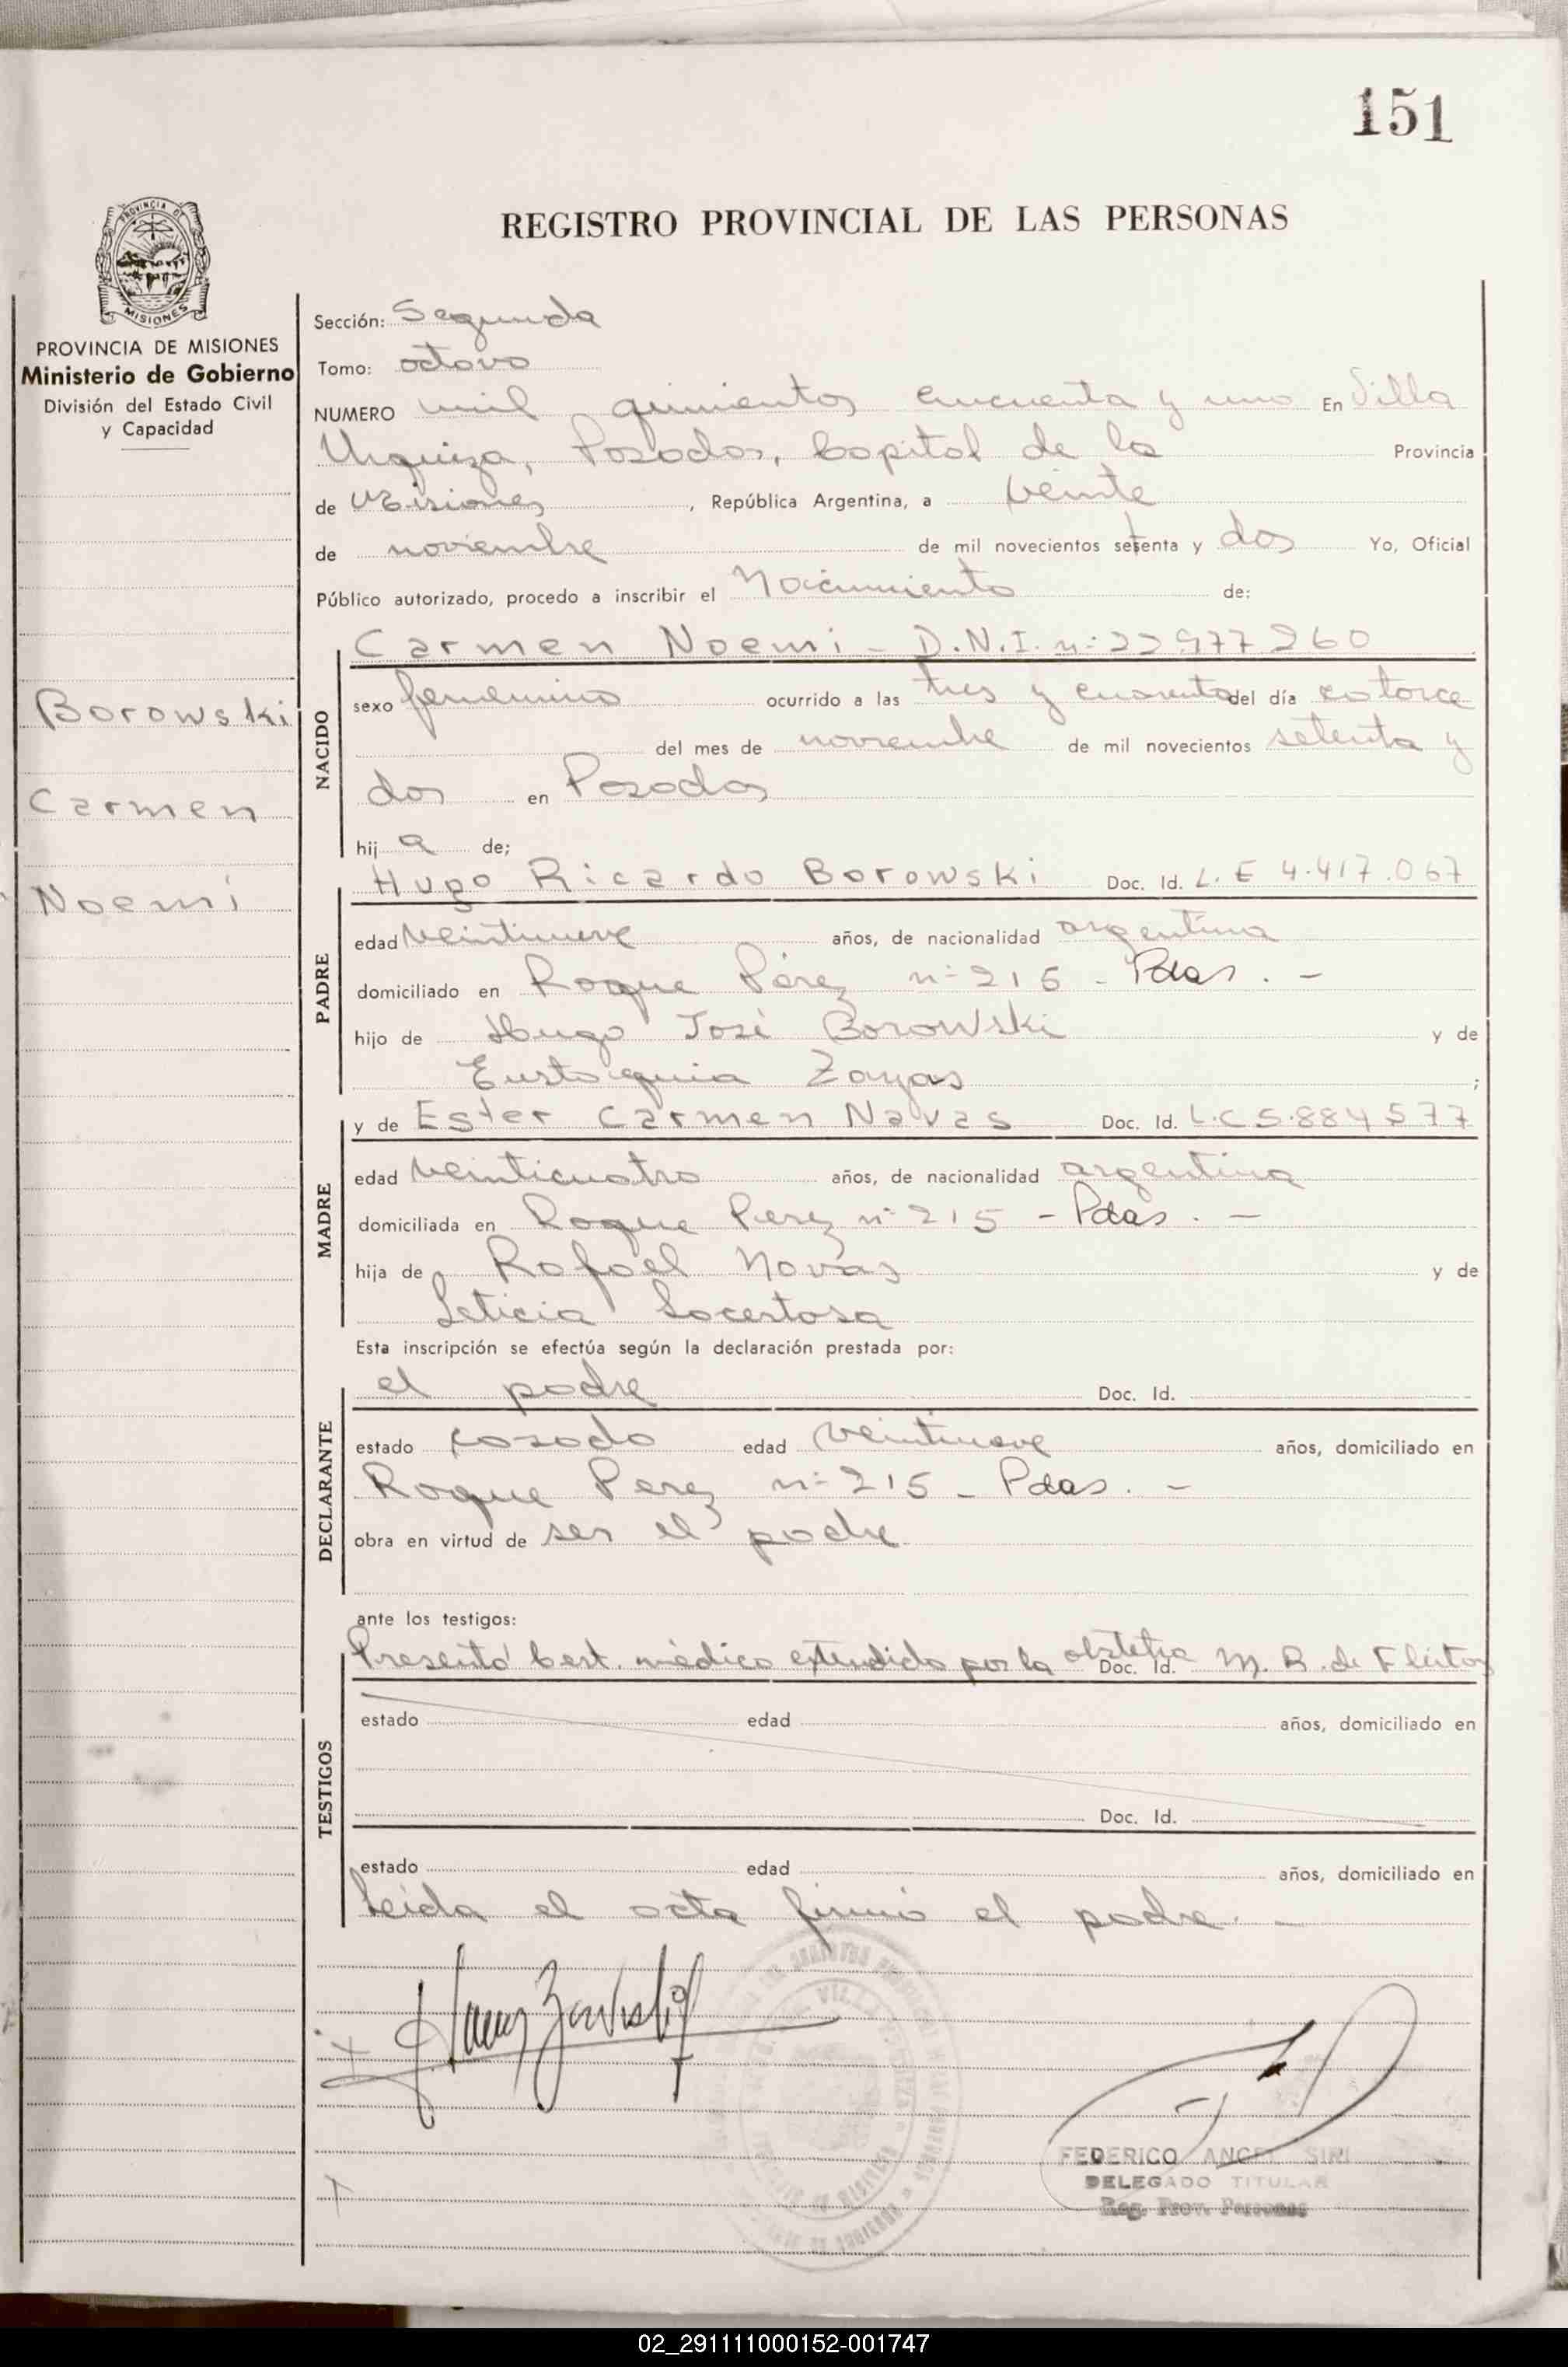 151
PROVINCIA DE MISIONES
REGISTRO PROVINCIAL DE LAS PERSONAS
PROVINCIA DE MISIONES
Ministerio de Gobierno
División del Estado Civil
y Capacidad
Borowski
Carmen
Noemí
Sección: Segunda
Tomo: octavo
NUMERO mil quinientos cincuenta y uno En Villa
Urquiza, Posadas, Capital de la Provincia
de Misiones, República Argentina, a veinte
de noviembre de mil novecientos setenta y dos Yo, Oficial
Público autorizado, procedo a inscribir el Nacimiento de:
Carmen Noemi - D.N.I. n: 22977260
NACIDO
sexo femenino ocurrido a las tres y cuarenta del día catorce
del mes de noviembre de mil novecientos setenta y
dos en Posadas
hij a de;
Hugo Ricardo Borowski Doc. Id. L. E 4.417.067
PADRE
edad veintinueve años, de nacionalidad argentina
domiciliado en Roque Pérez n: 215 - Pdas. -
hijo de Hugo José Borowski y de
Eustoquia Zayas ;
y de Ester Carmen Navas Doc. Id. L.C 5.884577
MADRE
edad veinticuatro años, de nacionalidad argentina
domiciliada en Roque Perez n: 215 - Pdas. -
hija de Rafael Navas y de
Leticia Locertosa
Esta inscripción se efectúa según la declaración prestada por:
el padre Doc. Id.
DECLARANTE
estado casado edad veintinueve años, domiciliado en
Roque Perez n: 215 - Pdas. -
obra en virtud de ser el padre
ante los testigos:
Presentó Cert. médico extendido por la obstetra Doc. Id. M. B. de Fleitas
TESTIGOS
estado edad años, domiciliado en
Doc. Id.
estado edad años, domiciliado en
Leída el acta firmó el padre. -
FEDERICO ANGEL SIRI
DELEGADO TITULAR
Reg. Prov. Personas
02_291111000152-001747